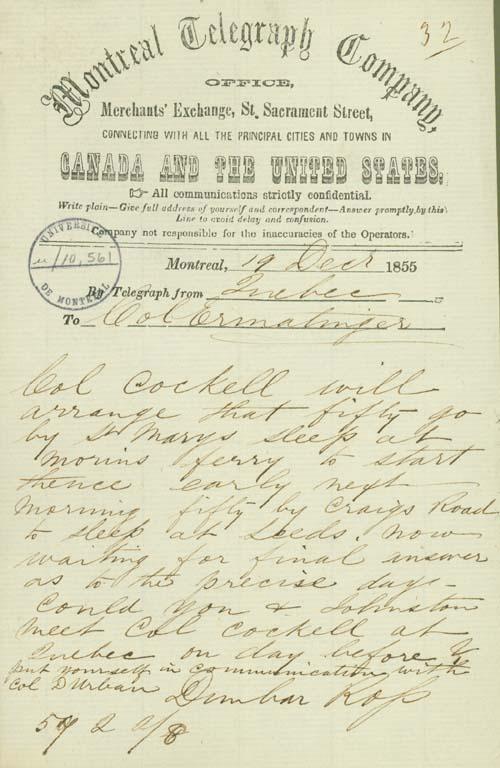 32
Montreal Telegraph Company,
OFFICE,
Merchants' Exchange, St. Sacrament Street,
CONNECTING WITH ALL THE PRINCIPAL CITIES AND TOWNS IN
CANADA AND THE UNITED STATES.
☞ All communications strictly confidential.
Write plain—Give full address of yourself and correspondent—Answer promptly, by this
Line to avoid delay and confusion.
Company not responsible for the inaccuracies of the Operators.
UNIVERSITÉ
u/10,561
DE MONTRÉAL
Montreal, 19 Decr 1855
By Telegraph from Quebec
To Col Ermatinger
Col Cockell will
arrange that fifty go
by St Marys sleep at
morins ferry to start
thence early next
morning fifty by Craigs Road
to sleep at Leeds. now
waiting for final answer
as to the precise days -
Could you & Johnston
meet Col Cockell at
Quebec on day before &
put yourself in communication with
Col D'Urban
Dunbar Ross